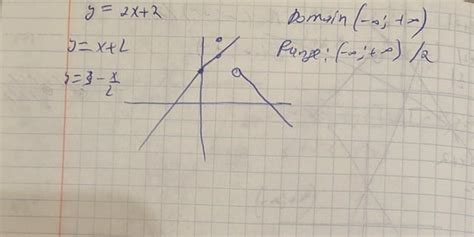 y = 2x+2
y = x+2
y = 3 - x/2
Domain (-∞; +∞)
Range: (-∞; +∞) /2